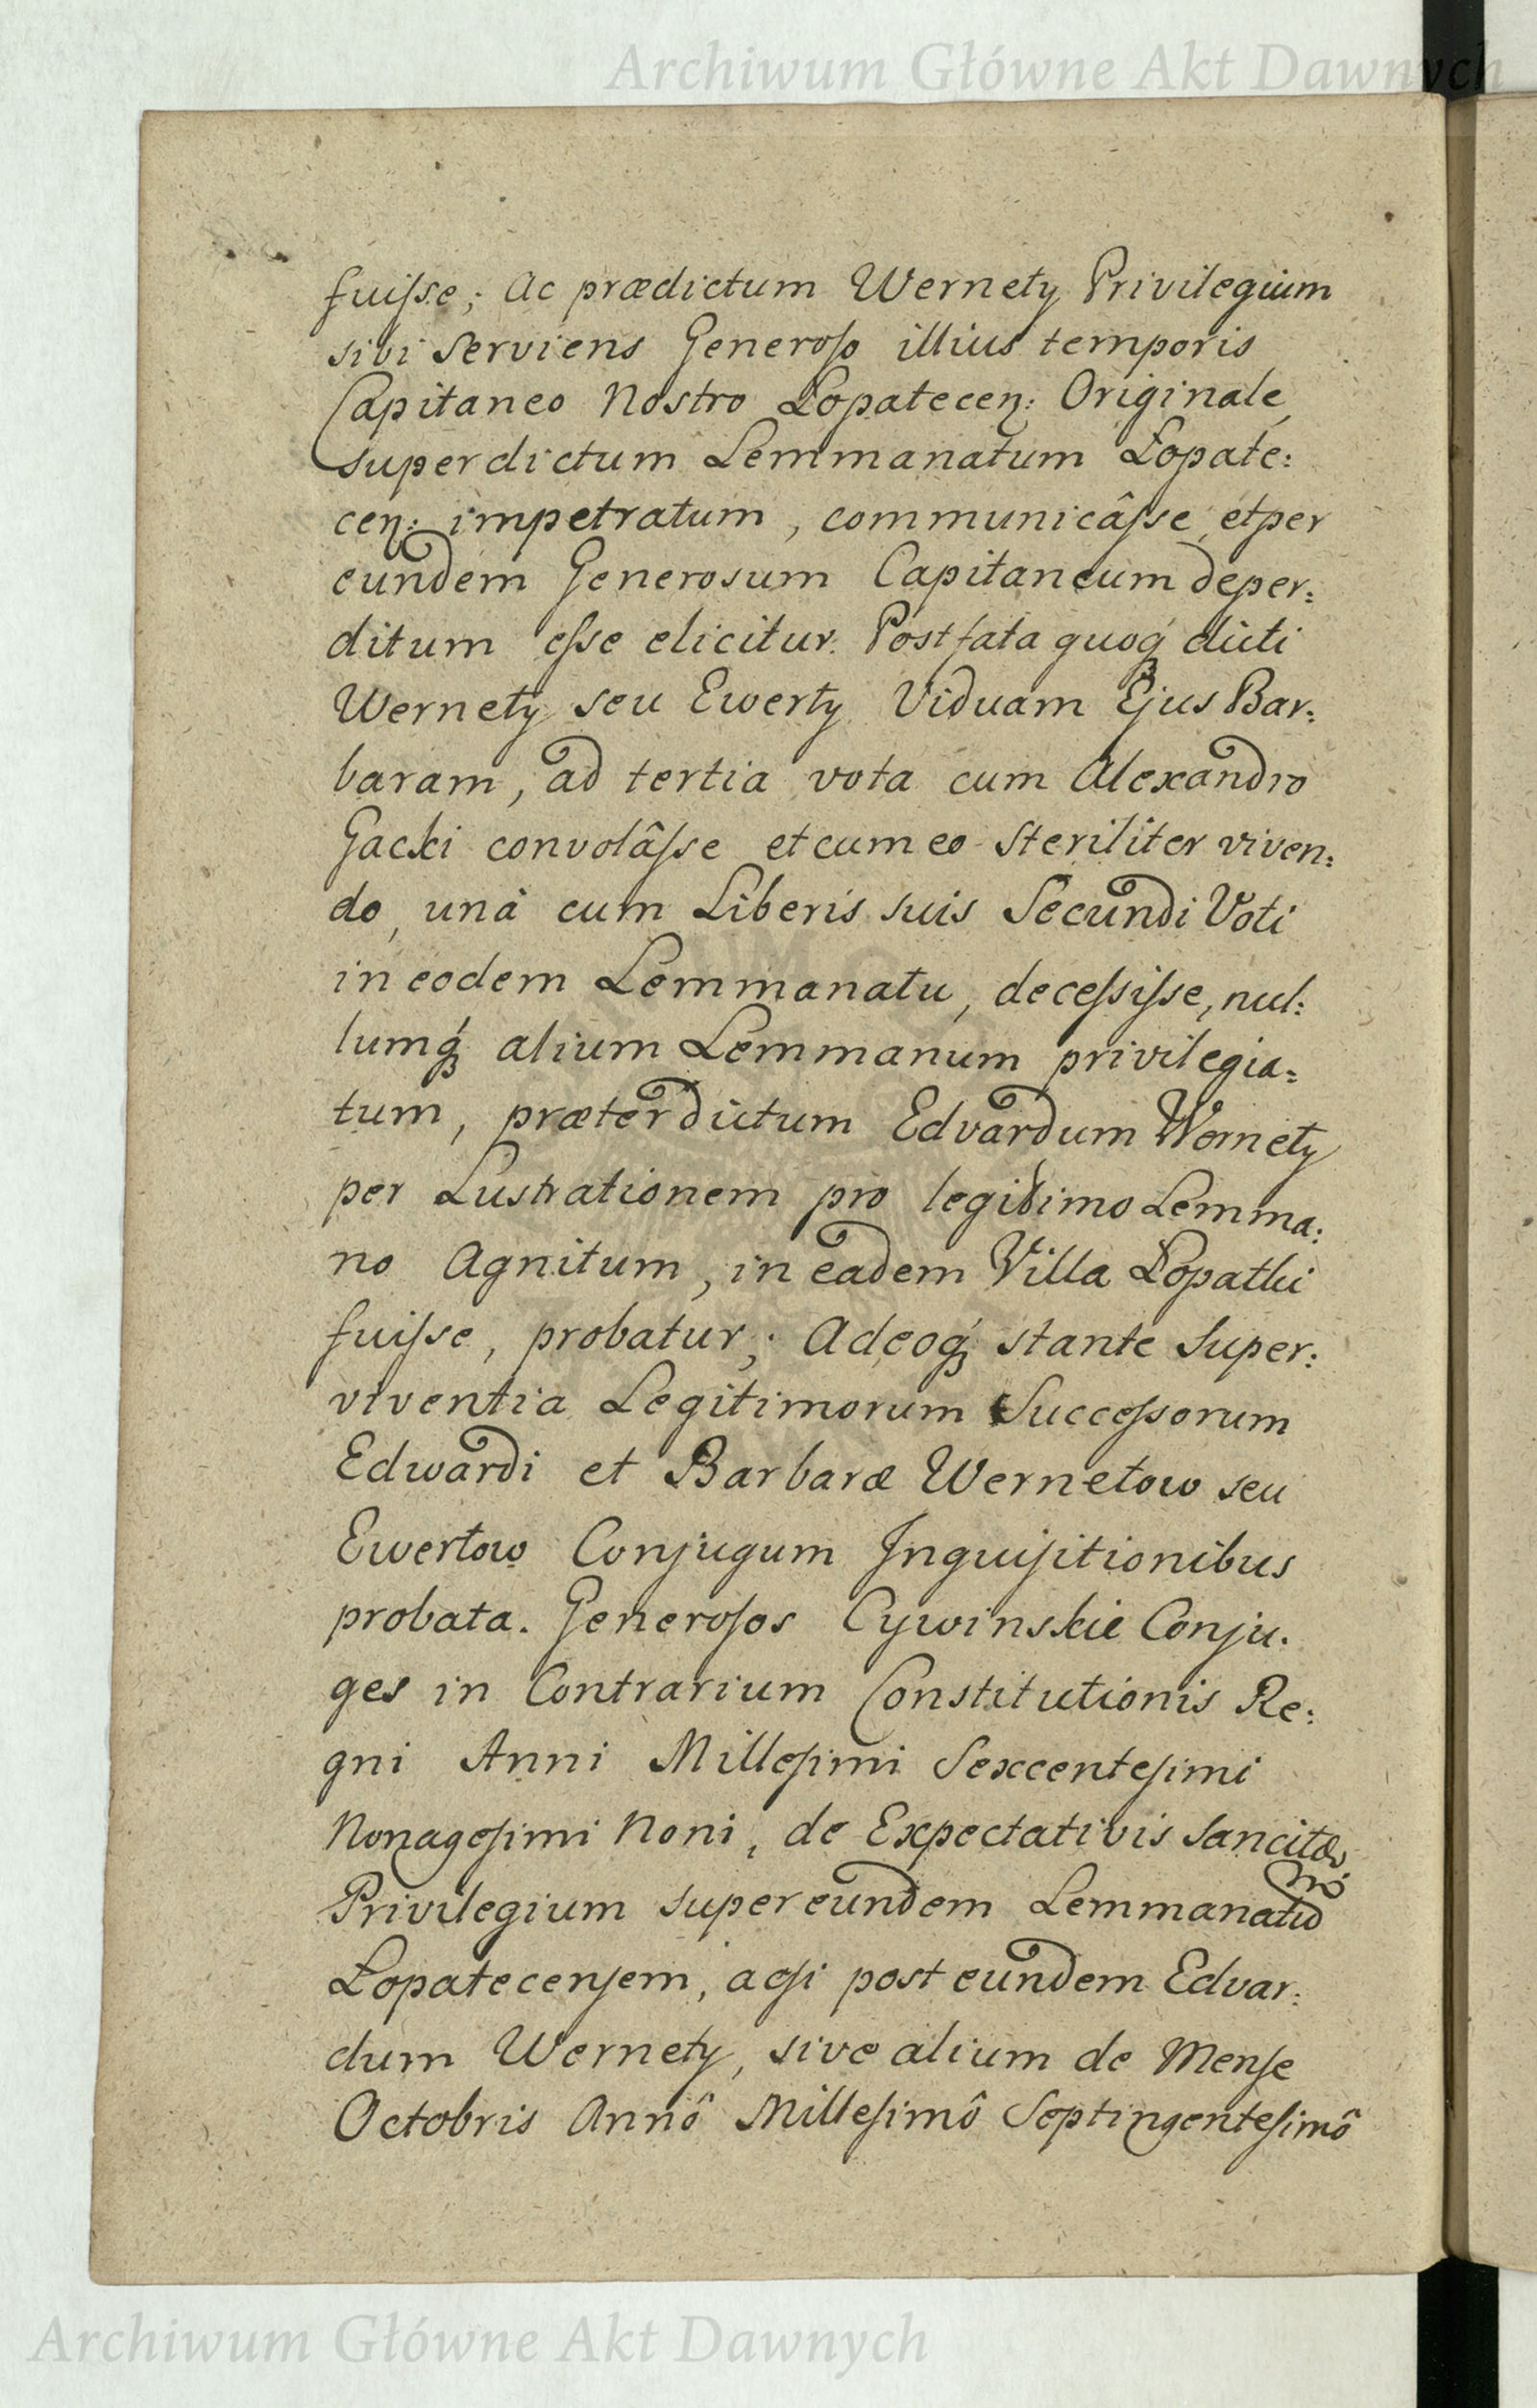 Archiwum Główne Akt Dawnych
fuiſse; Ac prædictum Wernety Privilegium
sibi Serviens Generoſo illius temporis
Capitaneo Nostro Łopatecen: Originale,
super dictum Lemmanatum Łopate:
cen: impetratum, communicâſse, et per
eundem Generosum Capitaneum deper:
ditum eſse elicitur. Post fata quoqꝫ dicti
Wernety seu Ewerty Viduam Ejus Bar:
baram, ad tertia vota cum Alexandro
Gacki convolâſse et cum eo Steriliter viven:
do, unà cum Liberis suis Secundi Voti
in eodem Lemmanatu, deceſsiſse, nul:
lumqꝫ alium Lemmanum privilegia:
tum, præter dictum Edvardum Wernety
per Lustrationem pro legitimo Lemma:
no Agnitum, in eadem Villa Łopatki
fuiſse, probatur; Adeoqꝫ stante Super:
viventia Legitimorum Succeſsorum
Edwardi et Barbaræ Wernetow seu
Ewertow Conjugum Inquiſitionibus
probata. Generoſos Cywinskie Conju:
ges in Contrarium Constitutionis Re:
gni Anni Milleſimi Sexcenteſimi
Nonageſimi Noni, de Expectativis Sancitæ,
Privilegium super eundem Lemmanatū
Łopatecenſem, acſi post eundem Edvar:
dum Wernety, sive alium de Menſe
Octobris Annô Milleſimô Septingenteſimô
Archiwum Główne Akt Dawnych